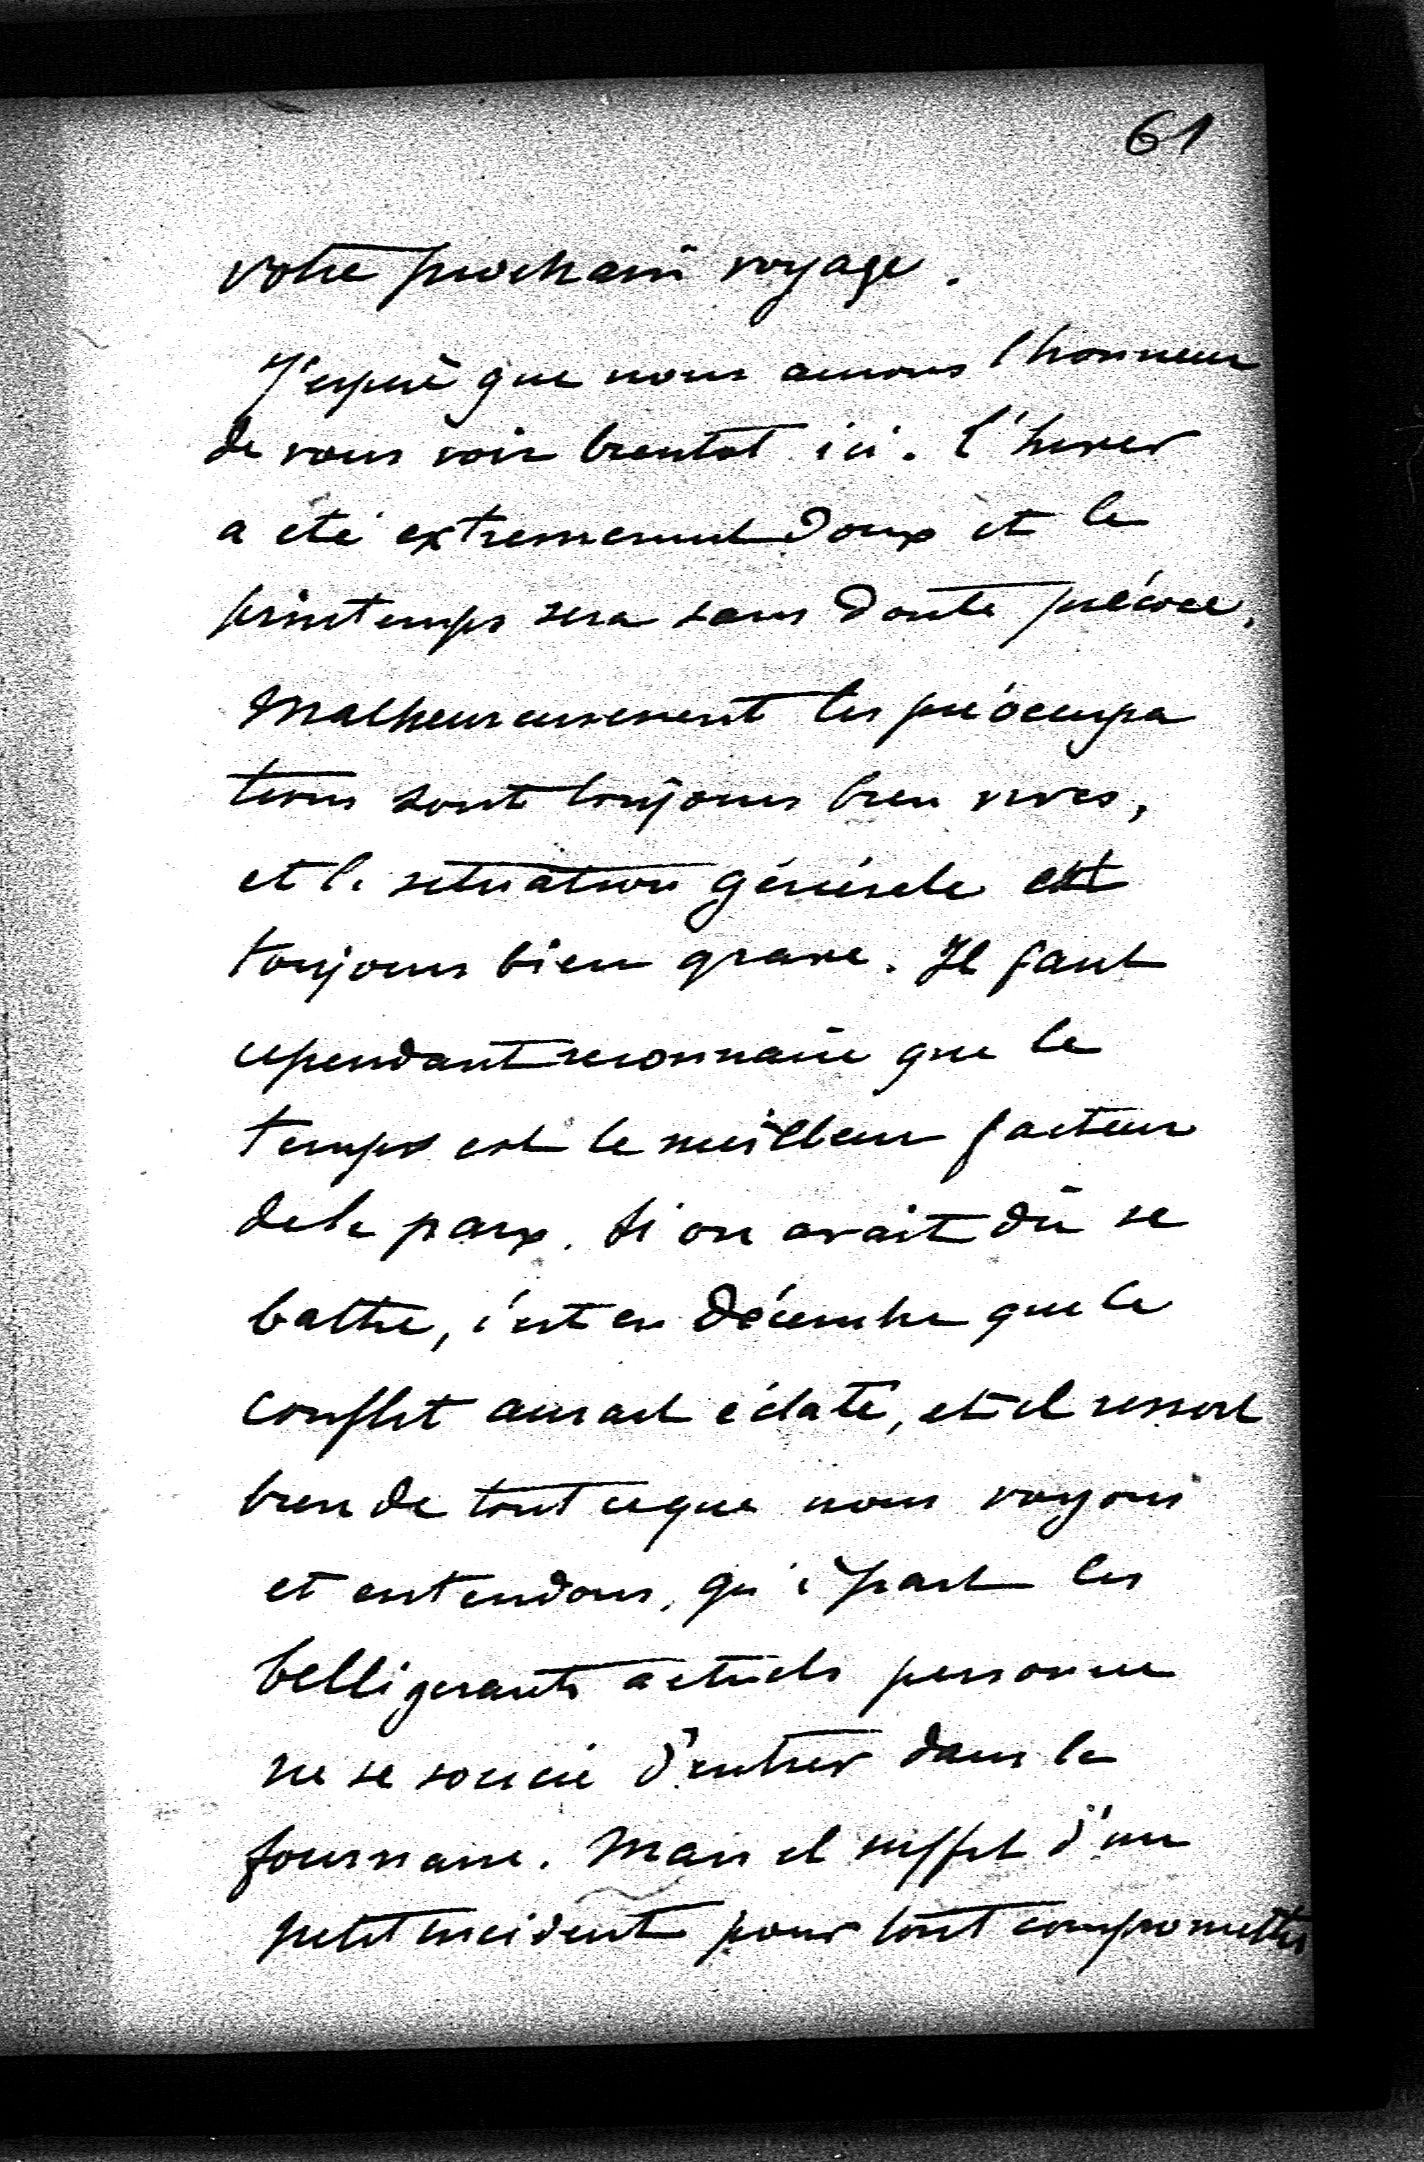 61
votre prochain voyage.
J'espère que nous aurons l'honneur
de vous voir bientot ici. L'hiver
a été extremement doux et le
printemps sera sans doute précoce.
Malheureusement les préoccupa
tions sont toujours bien vives,
et la situation générale est
toujours bien grave. Il faut
cependant reconnaître que le
temps est le meilleur facteur
de la paix. Si on avait dû se
battre, c'est en Décembre que le
conflit aurait éclaté, et il ressort
bien de tout ce que nous voyons
et entendons, qu'à part les
belligerants actuels personne
ne se soucie d'entrer dans la
fournaise. Mais il suffit d'un
petit incident pour tout compromettre